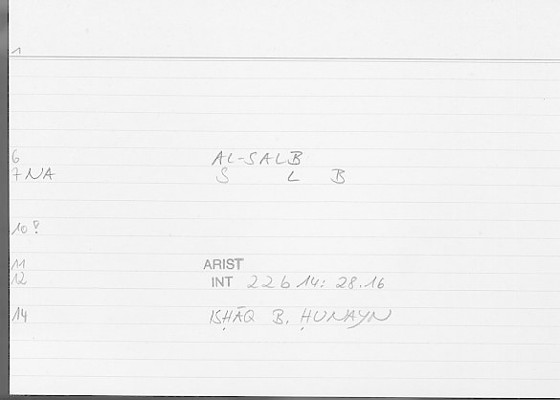 1
6 AL-SALB
7 NA S L B
10?
11 ARIST
12 INT 22b 14: 28.16
14 ISḤĀQ B. ḤUNAYN